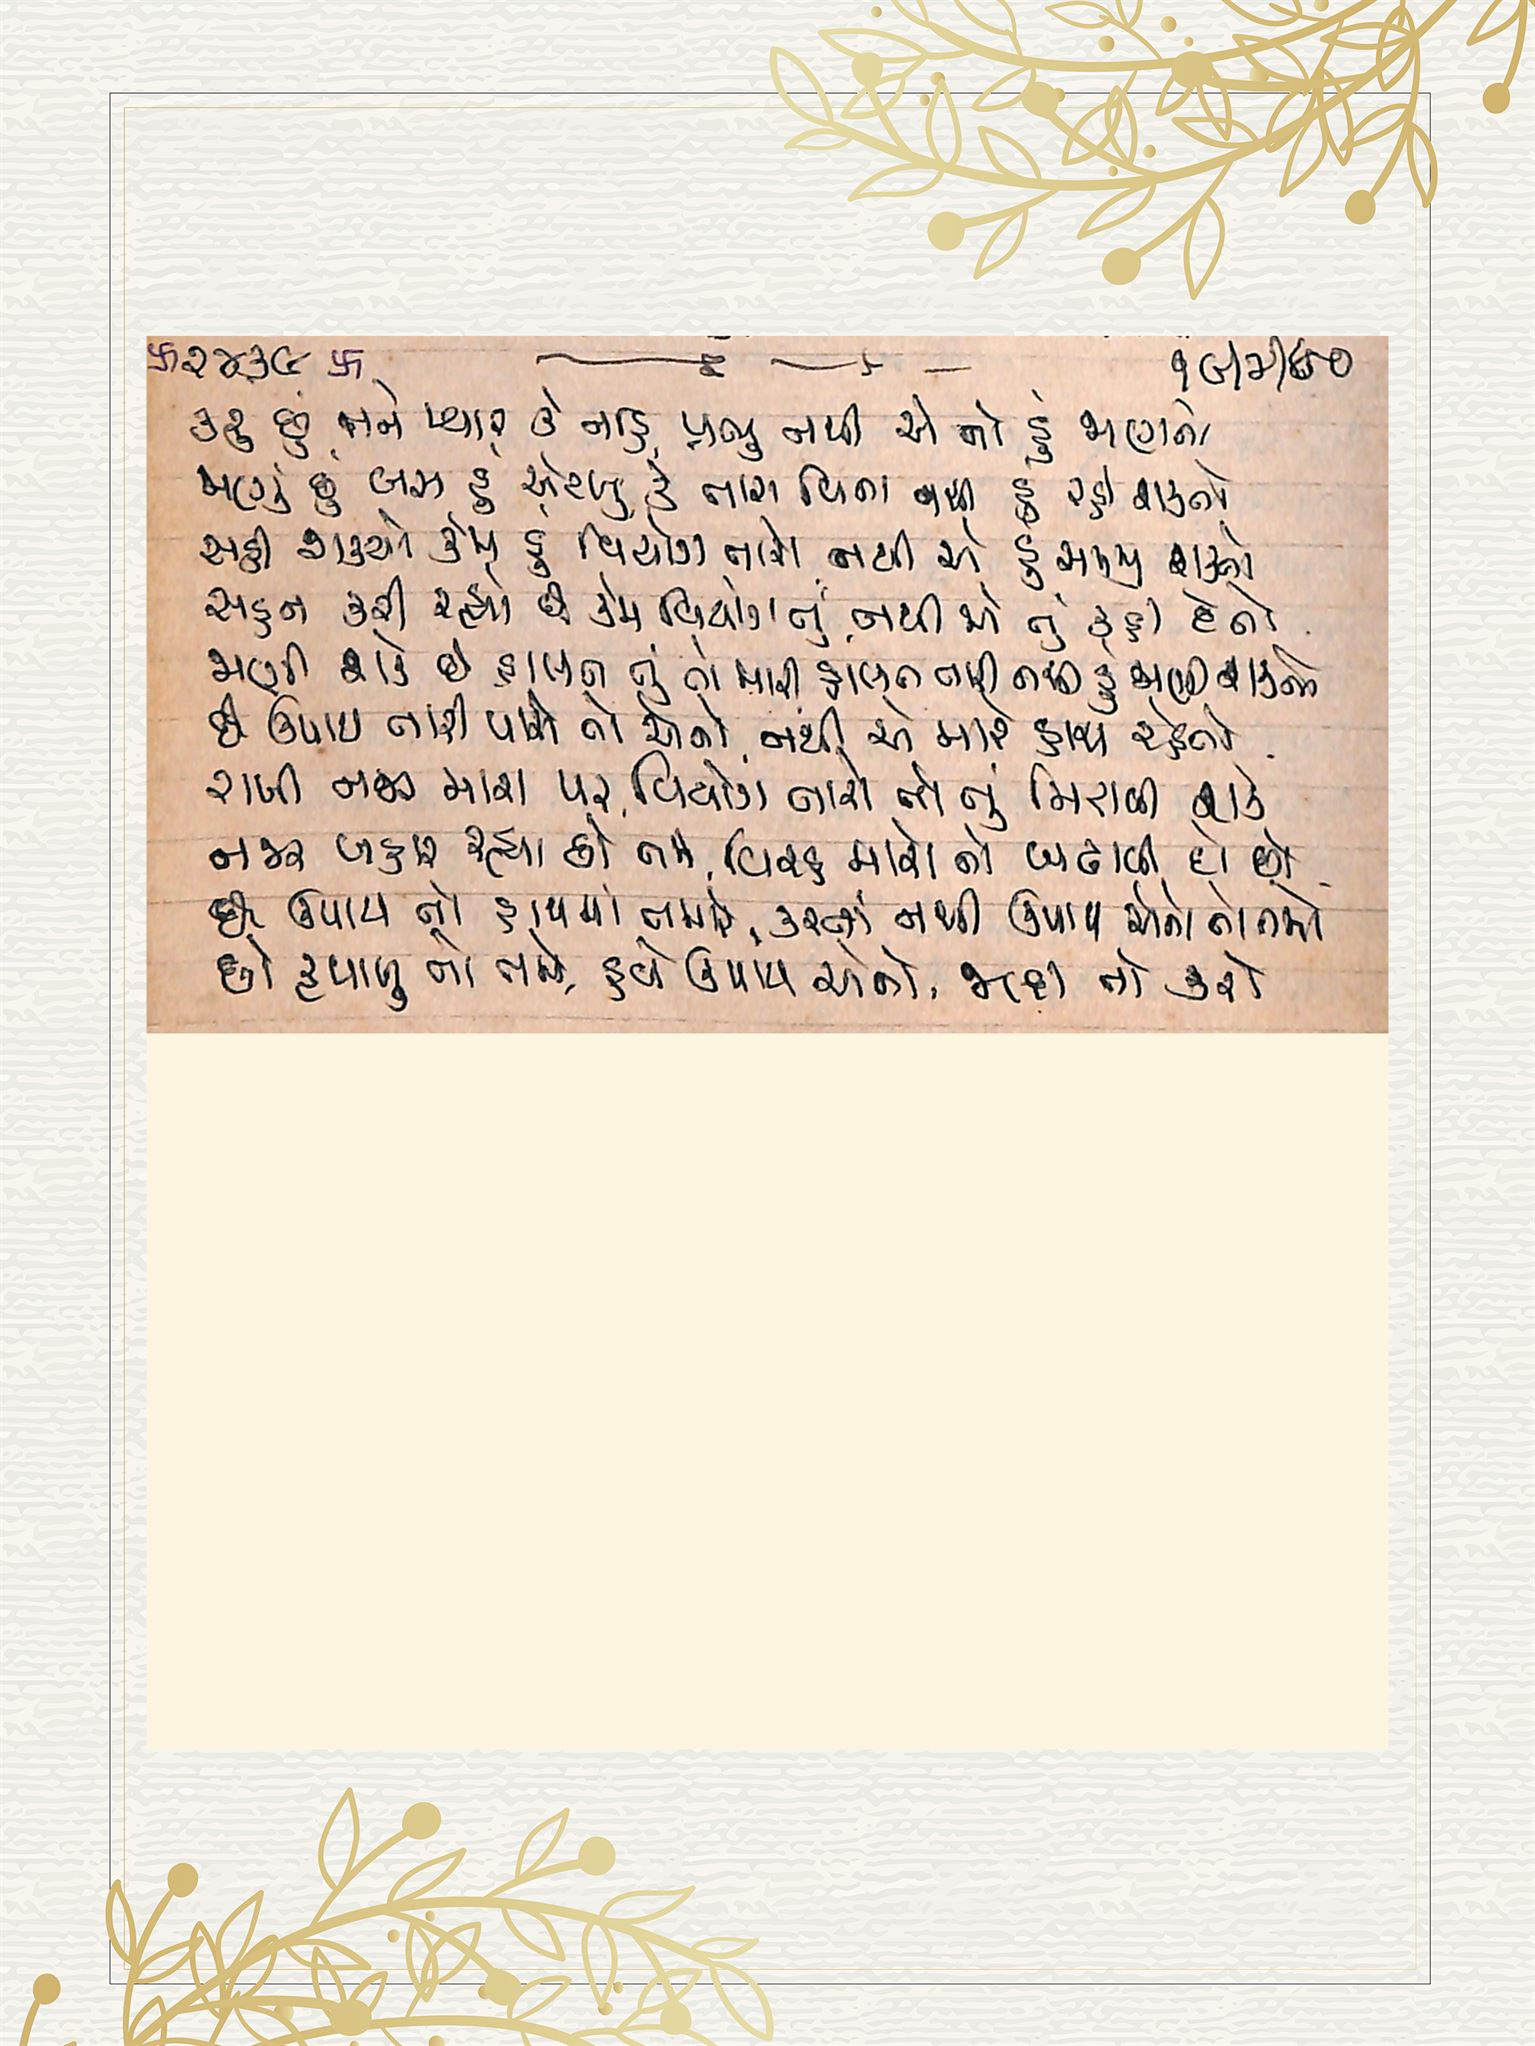 卐 ૨૪૩૯ 卐
કરું છું તને પ્યાર કે નહિ, પ્રભુ નથી એ તો હું જાણતો
જાણું છું બસ હું એટલું, કે તારા વિના નથી હું રહી શકતો
સહી શક્યો કેમ હું વિયોગ તારો, નથી એ હું સમજી શકતો
સહન કરી રહ્યો છે કેમ વિયોગ તું, નથી એ તું કહી દેતો.
જાણી શકે છે હાલત તું તો મારી હાલત તારી નથી હું જાણી શકતો
છે ઉપાય તારી પાસે તો એનો, નથી એ મારે હાથ રહેતો.
રાખી નજર મારા પર, વિયોગ તારો તો તું મિટાવી શકે
નજર બહાર રહ્યા છો તમે, વિરહ મારો તો બઢાવી દો છો.
છે ઉપાય તો હાથમાં તમારે, કરતાં નથી ઉપાય એનો તો તમે
છો દયાળુ તો તમે, હવે ઉપાય એનો, જલ્દી તો કરો